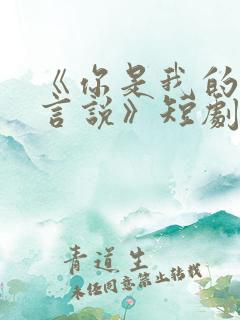 《你是我的
言說》短劇
青道生
未经同意禁止转载